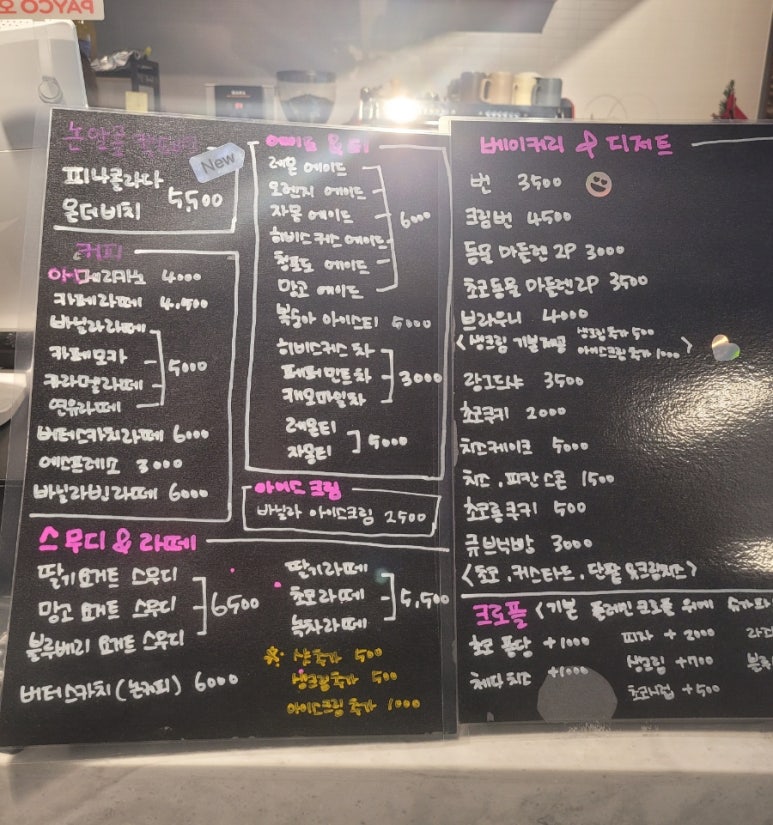 논알콜 칵테일
New
피나콜라다
몰디비치
5,500
커피
아메리카노 4000
카페라떼 4,500
바닐라라떼
카페모카
카라멜라떼
연유라떼
5000
버터스카치라떼 6000
에스프레소 3000
바닐라빈라떼 6000
에이드 & 티
레몬 에이드
오렌지 에이드
자몽 에이드
히비스커스 에이드
청포도 에이드
망고 에이드
6000
복숭아 아이스티 5000
히비스커스차
페퍼민트차
캐모마일차
3000
레몬티
자몽티
5000
아이스크림
바닐라 아이스크림 2500
스무디 & 라떼
딸기요거트 스무디
망고 요거트 스무디
블루베리 요거트 스무디
6500
버터스카치(논커피) 6000
딸기라떼
초코라떼
녹차라떼
5,500
샷추가 500
생크림추가 500
아이스크림 추가 1000
베이커리 & 디저트
번 3500
크림번 4500
동물 마들렌 2P 3000
초코동물 마들렌 2P 3500
브라우니 4000
<생크림 기본제공 생크림추가 500
아이스크림추가 1000>
랑그드샤 3500
초코쿠키 2000
치즈케이크 5000
치즈, 피칸 스콘 1500
초코롱쿠키 500
큐브식빵 3000
<초코, 커스타드, 단팥 &크림치즈>
크로플 <기본 플레인 크로플 위에
초코 퐁당 +1000
체다 치즈 +1000
피자 +2000
생크림 +700
초코시럽 +500